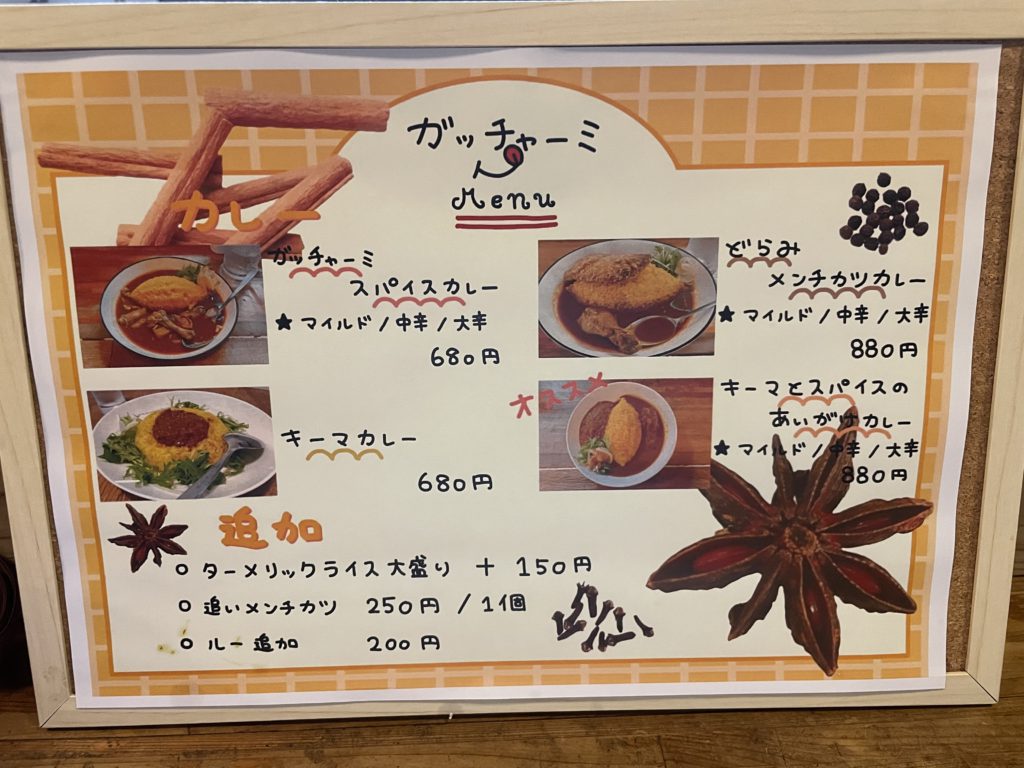 ガッチャーミ
Menu
カレー
ガッチャーミ
スパイスカレー
★マイルド/中辛/大辛
680円
キーマカレー
680円
どらみ
メンチカツカレー
★マイルド/中辛/大辛
880円
オススメ
キーマとスパイスの
あいがけカレー
★マイルド/中辛/大辛
880円
追加
○ ターメリックライス大盛り + 150円
○ 追いメンチカツ 250円 / 1個
○ ルー追加 200円